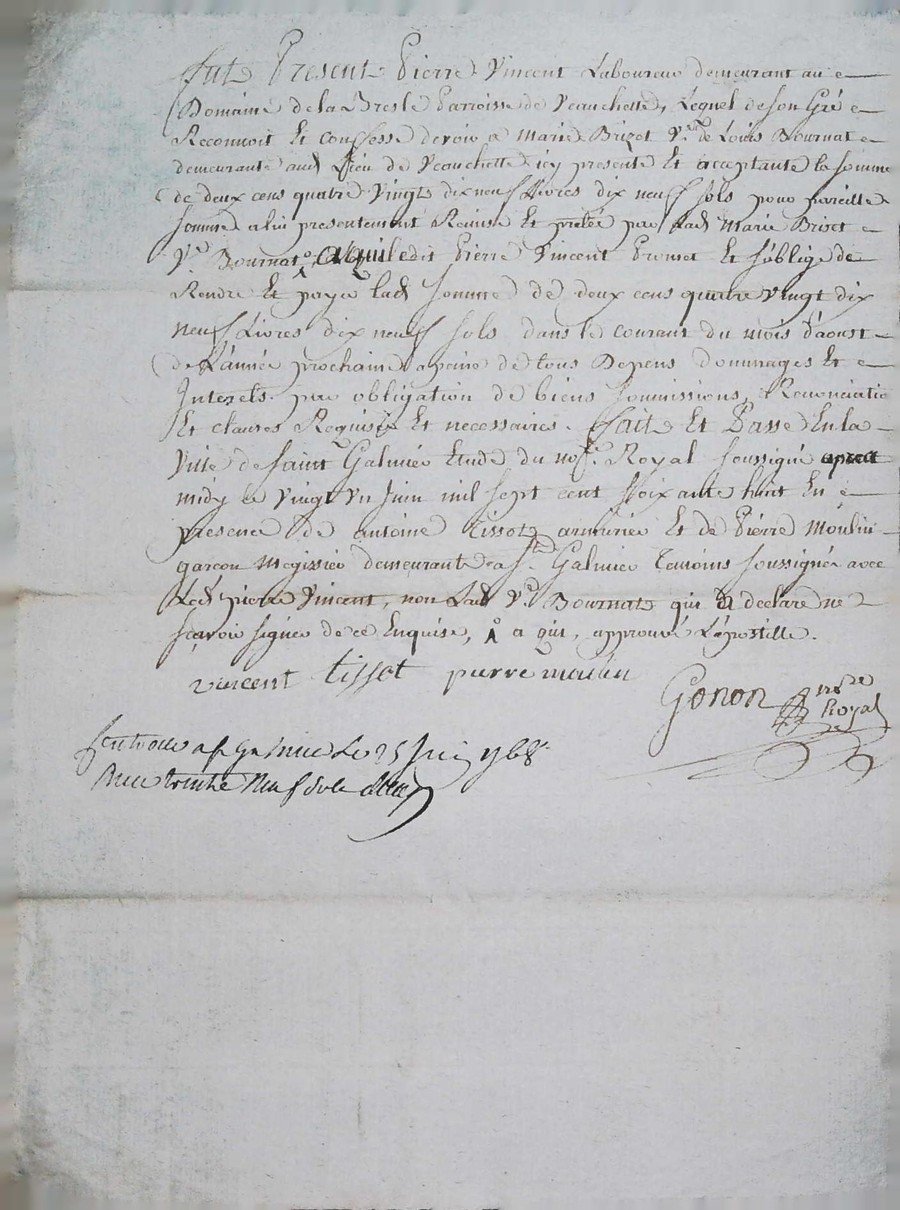 fut Present Pierre Vincent Laboureur demeurant au
Domaine de la Bresle Parroisse de Veauchette, Lequel de son Gré
Reconnoit Et confesse devoir a Marie Brizet Vve de Louis Bournat
demeurante aud Lieu de Veauchette icy presente Et acceptante la somme
de deux cens quatre Vingt dix neuf Livres dix neuf sols pour pareille
somme a lui presentement Remise Et pretée par Lad Marie Briset
Ve Bournat, Ledit Pierre Vincent Promet Et s'oblige de
Rendre Et payer lad somme de deux cens quatre vingt dix
neuf Livres dix neuf sols dans le courant du mois d'aoust
de L'année prochaine a peine de tous Depens dommages Et
Interets par obligation de biens soumissions, Renonciatio
Et clauses Requises Et necessaires. fait Et Passé En la
Ville de Saint Galmier Etude du nore Royal soussigné
midy le vingt un juin mil sept cent soixante huit En
presence de antoine Tissot armurier Et de Pierre Moulin
garçon Megissier demeurant a St Galmier Temoins soussignés avec
Led pierre Vincent, non Lad Ve Bournat qui a declaré ne
sçavoir signer de ce Enquise, a qui, approuvé L'apostille.
vincent tissot pierre moulin
Gonon nore
Royal
a St Galmier Le 25 juin 1768
Recu trente Neuf sols